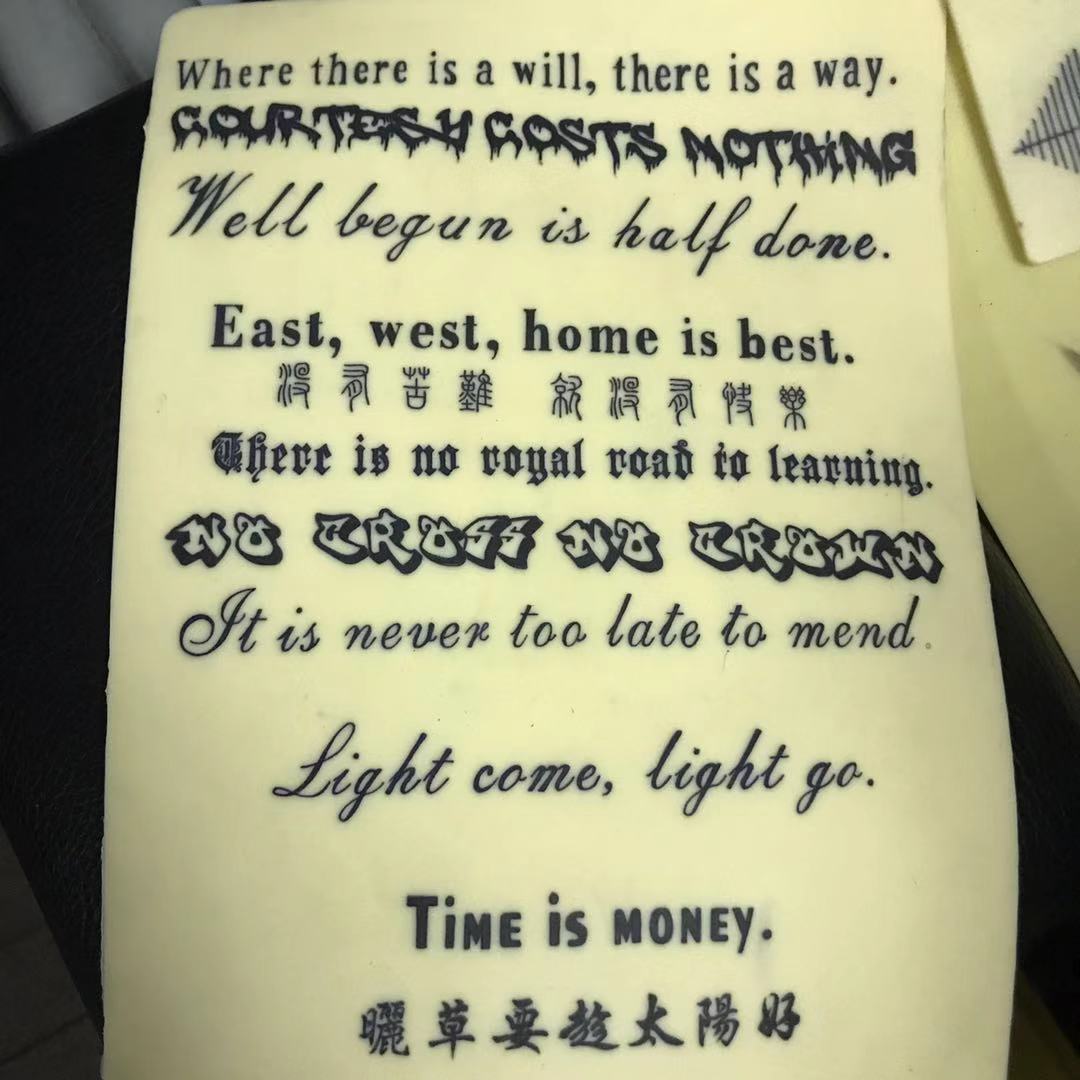 Where there is a will, there is a way.
COURTESY COSTS NOTHING
Well begun is half done.
East, west, home is best.
沒有苦難 就沒有快樂
There is no royal road to learning.
NO CROSS NO CROWN
It is never too late to mend。
Light come, light go.
TiME iS MONEY.
曬草要趁太陽好